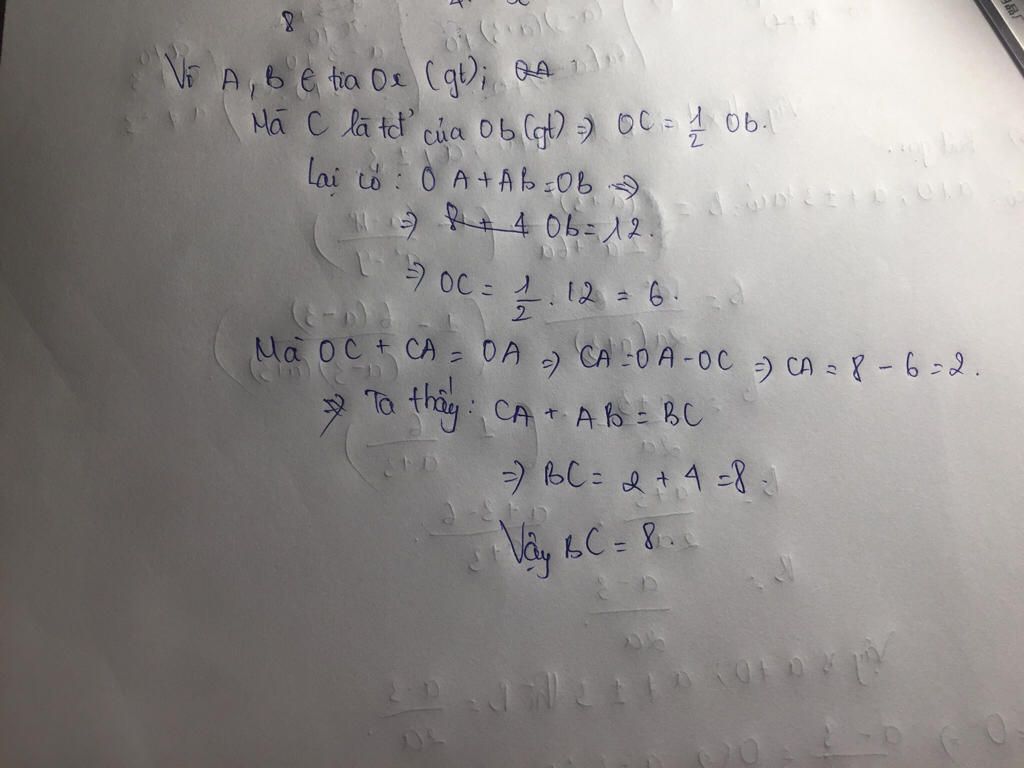 8
Vì A, B ∈ tia Ox (gt); OA
Mà C là tđ của Ob (gt) ⇒ OC = 1/2 Ob.
Lại có: OA + AB = OB ⇒
⇒ 8 + 4 Ob = 12.
⇒ OC = 1/2 . 12 = 6.
Mà OC + CA = OA ⇒ CA = OA - OC ⇒ CA = 8 - 6 = 2.
⇒ Ta thấy: CA + AB = BC
⇒ BC = 2 + 4 = 8.
Vậy BC = 8.